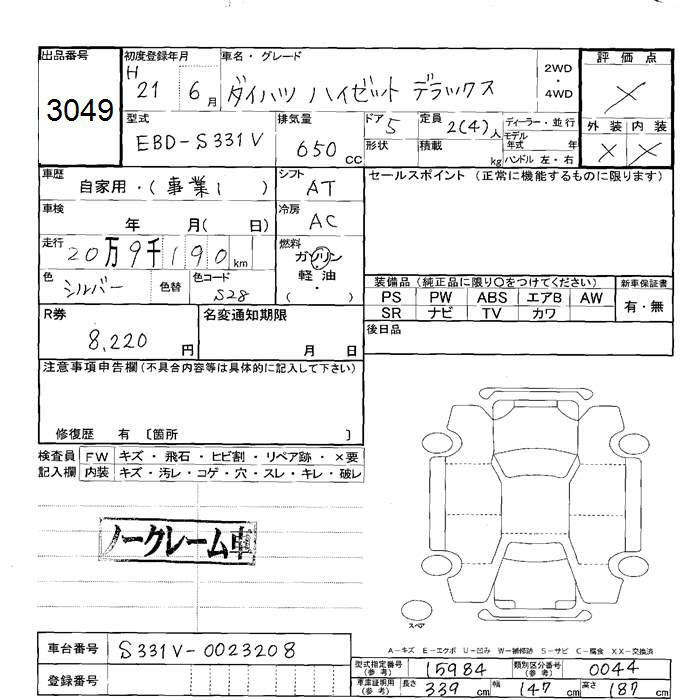 出品番号
3049
初度登録年月
H
21 6 月
車名・グレード
ダイハツ ハイゼット デラックス
2WD
・
4WD
評価点
X
外装 内装
X X
型式
EBD-S331V
排気量
650 CC
ドア 5
形状
定員 2(4) 人
積載 kg
ディーラー・並行
モデル
年式 年
ハンドル 左・右
車歴
自家用・(事業1 )
シフト
AT
セールスポイント (正常に機能するものに限ります)
車検
年 月( 日)
冷房
AC
走行
20万9千190km
燃料
ガソリン
軽・油
・
( )
色
シルバー
色替
色コード
S28
装備品 (純正品に限り○をつけてください)
新車保証書
PS PW ABS エアB AW
SR ナビ TV カワ
有・無
R券
8,220 円
名変通知期限
月 日
後日品
注意事項申告欄(不具合内容等は具体的に記入して下さい)
修復歴 有 〔箇所 〕
検査員
記入欄
FW キズ・飛石・ヒビ割・リペア跡・×要
内装 キズ・汚レ・コゲ・穴・スレ・キレ・破レ
ノークレーム車
スペア
A-キズ E-エクボ U-凹み W-補修跡 S-サビ C-腐食 XX-交換済
車台番号
S331V-0023208
登録番号
型式指定番号
(参考)
15984
類別区分番号
(参考)
0044
車庫証明用
(参考)
長さ 339 cm 幅 147 cm 高さ 187 cm